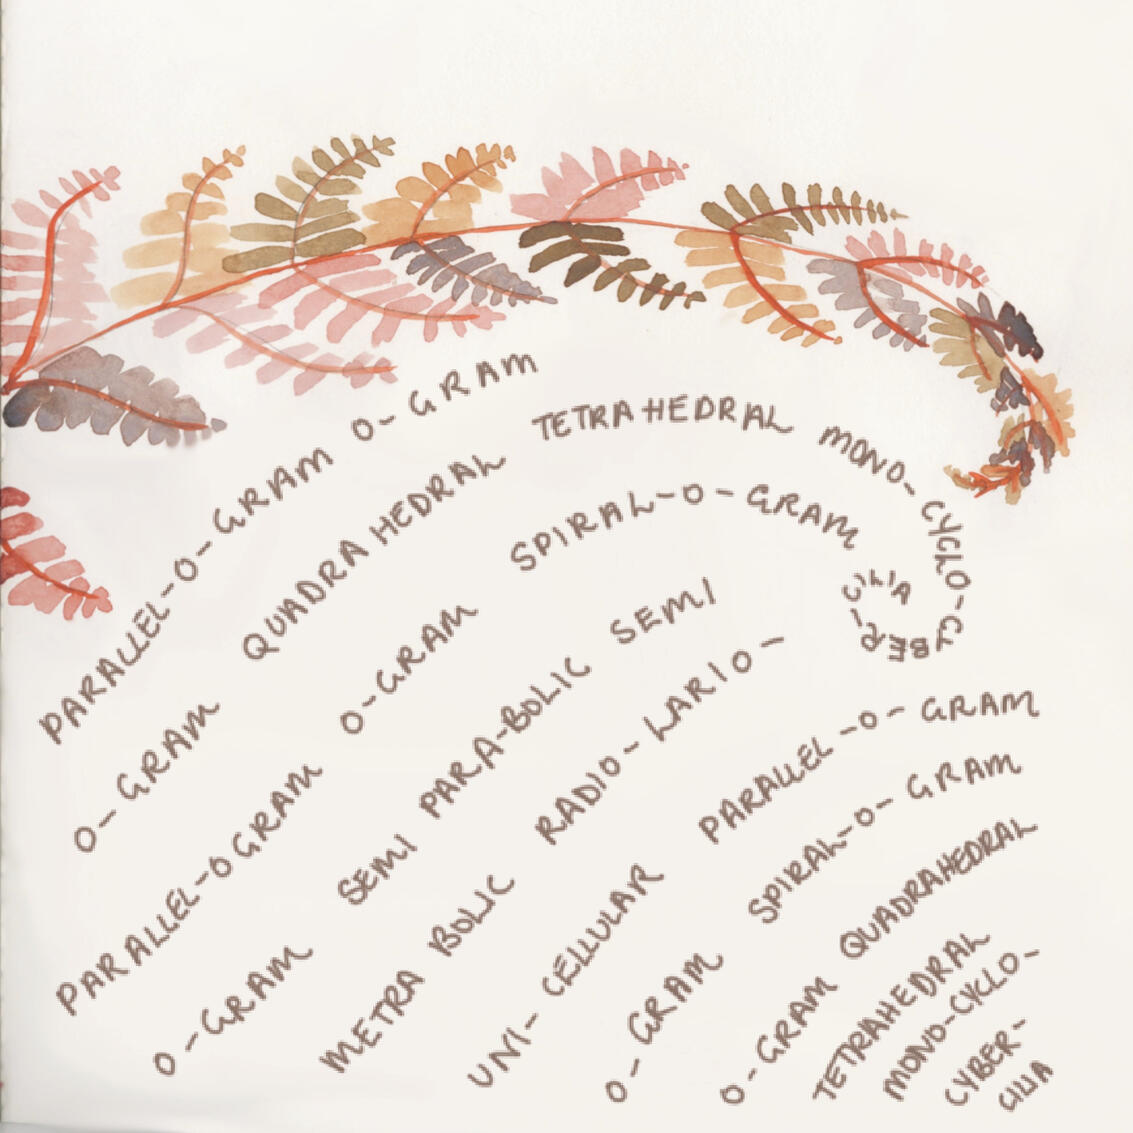 PARALLEL-O-GRAM O-GRAM
O-GRAM QUADRAHEDRAL TETRAHEDRAL MONO-CYCLO-CYBER-CILIA
PARALLEL-O GRAM O-GRAM SPIRAL-O-GRAM
O-GRAM SEMI PARA-BOLIC SEMI
METRA BOLIC RADIO-LARIO-
UNI-CELLULAR PARALLEL-O-GRAM
O-GRAM SPIRAL-O-GRAM
O-GRAM QUADRAHEDRAL
TETRAHEDRAL
MONO-CYCLO-
CYBER-
CILIA